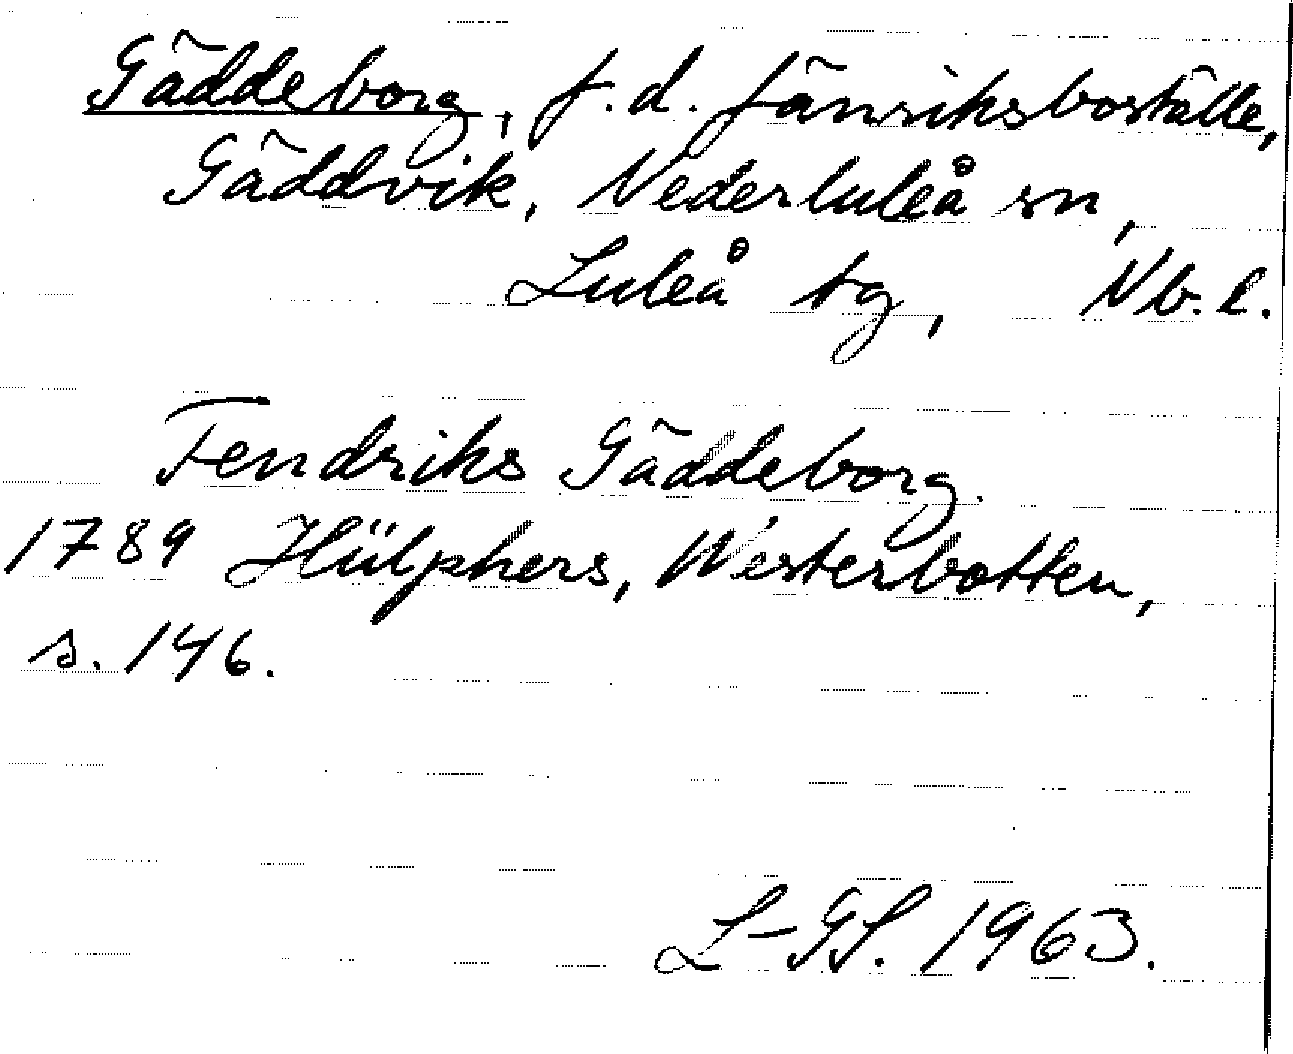 Gäddeborg, f.d. fänriksboställe,
Gäddvik, Nederluleå sn,
Luleå tg, Nb. l.
Fendriks Gäddeborg.
1789 Hülphers, Westerbotten,
s. 146.
L-GS. 1963.